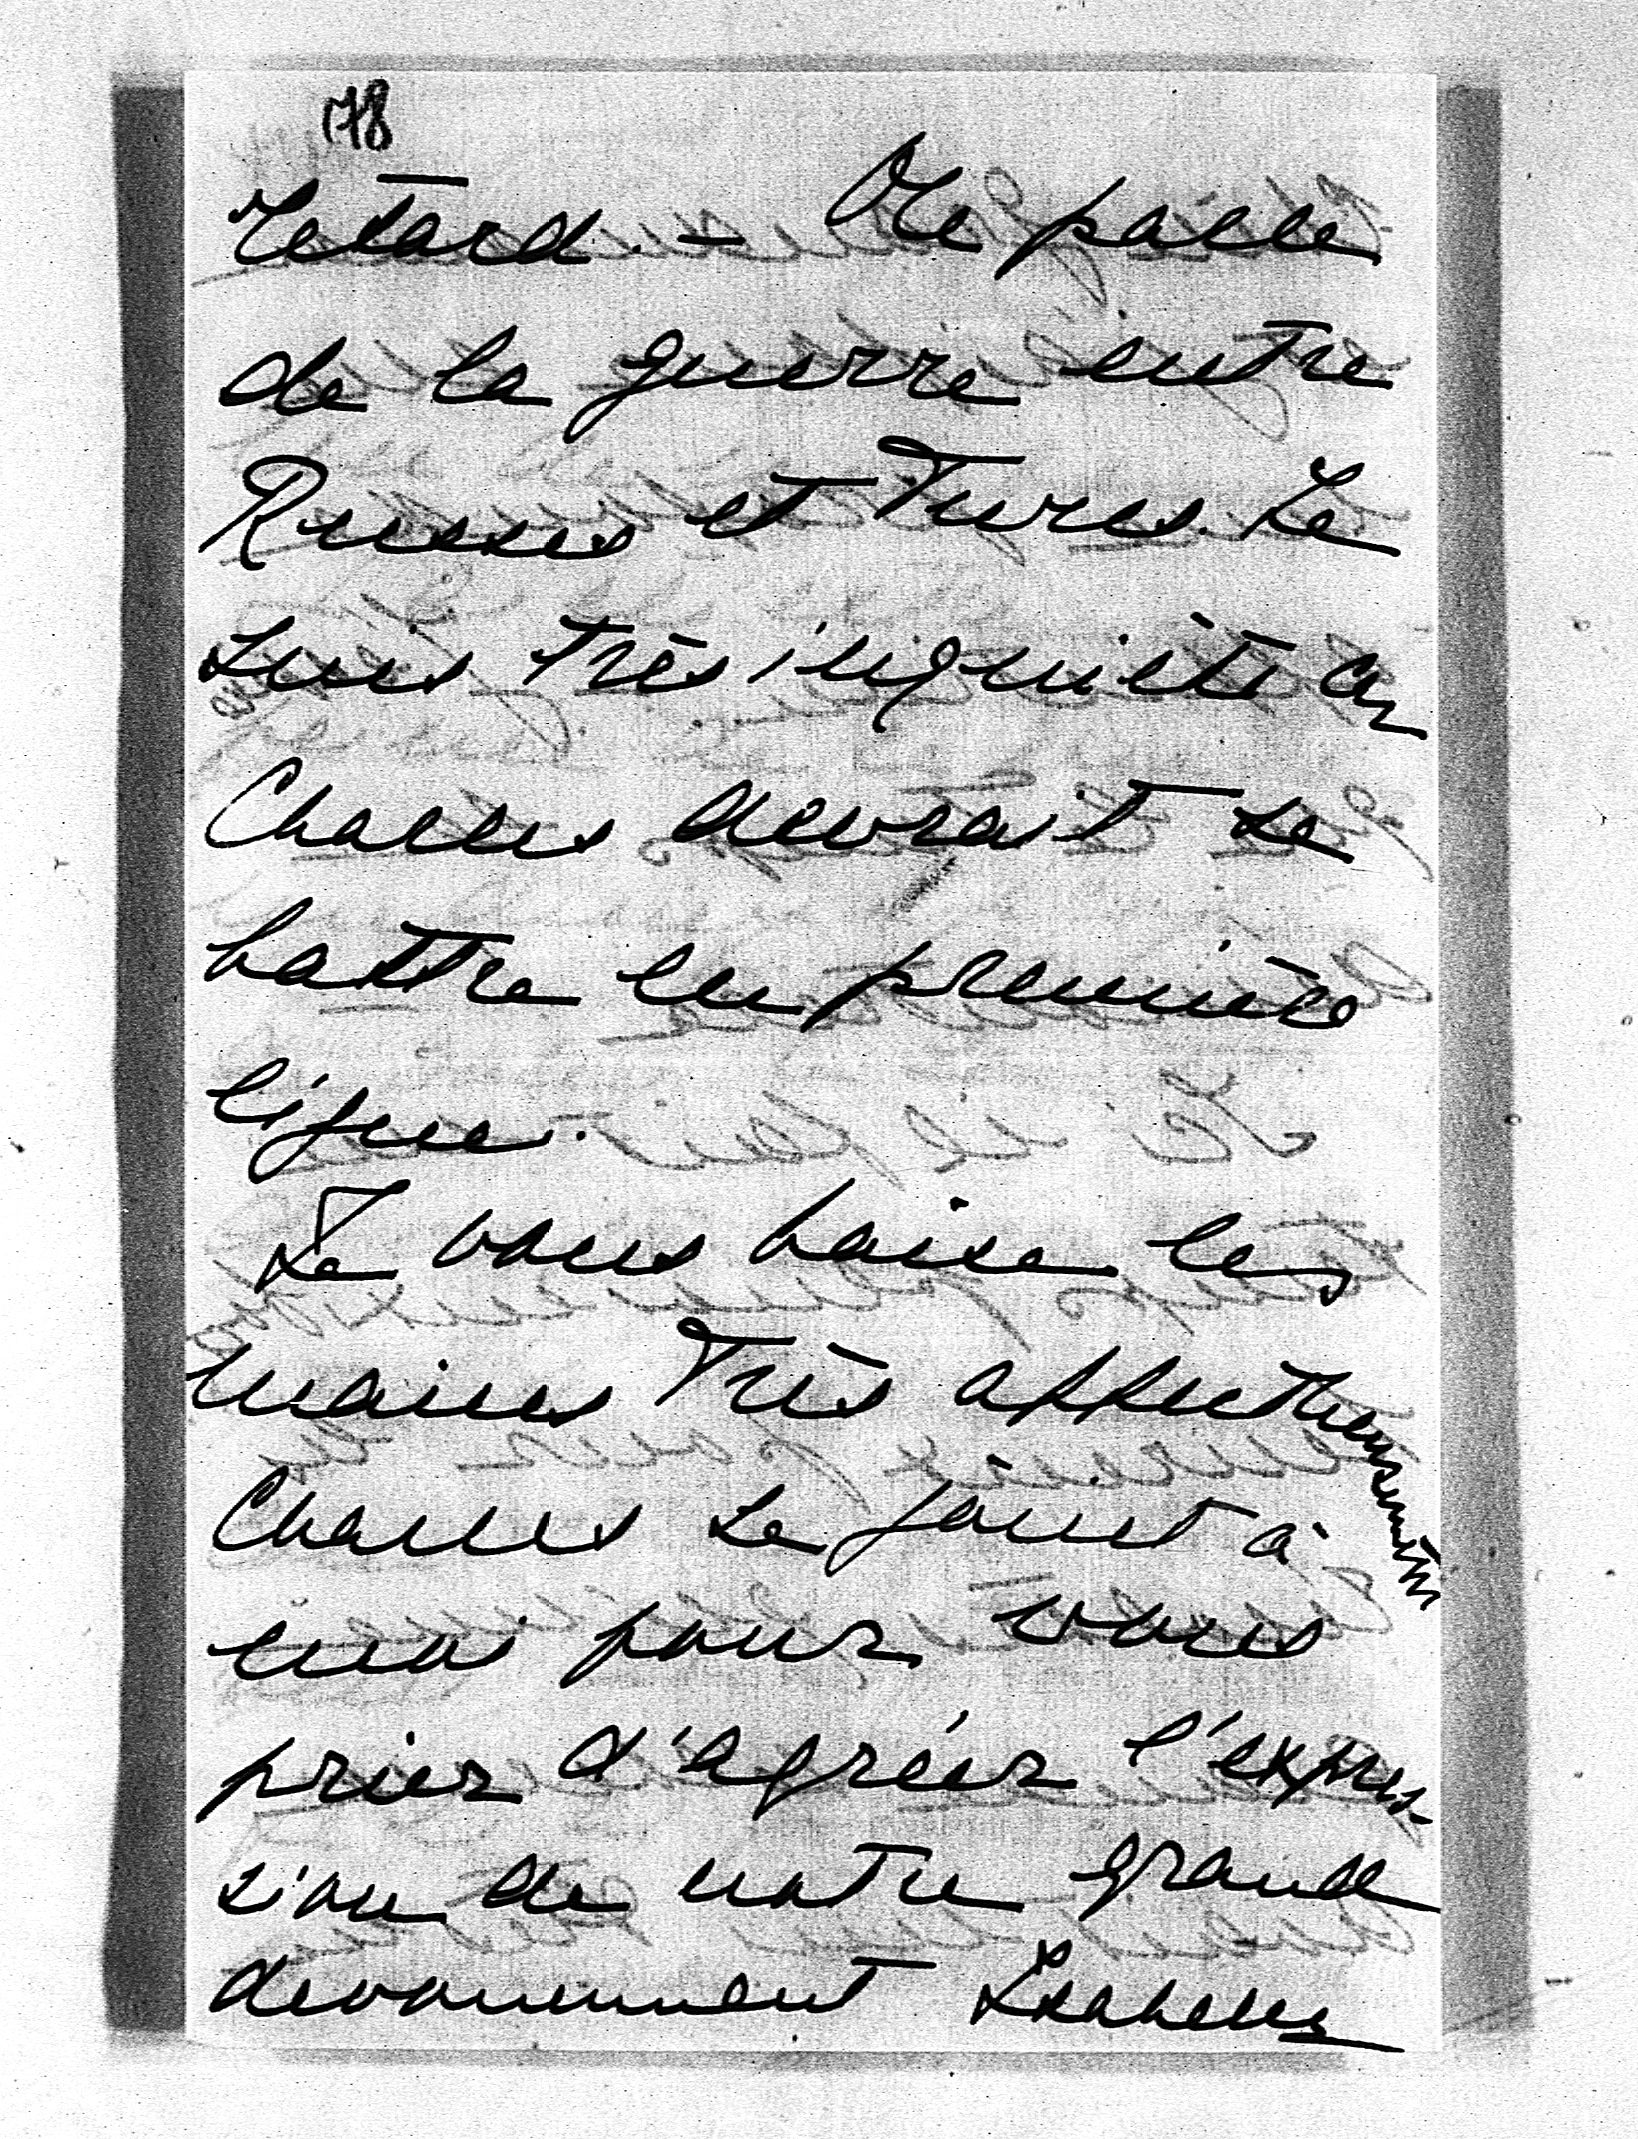 178
retard. — On parle
de la guerre entre
Russes et Turcs. Je
suis très inquiète car
Charles devrait se
battre en première
ligne.
Je vous baise les
mains très affectueusement
Charles se joint à
moi pour vous
prier d'agréer l'expres-
sion de notre grand
dévouement Isabelle